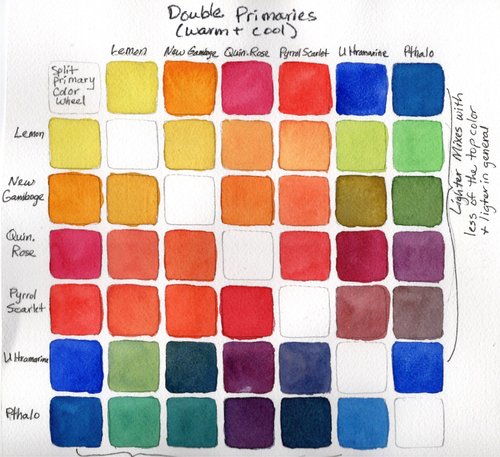 Double Primaries
(warm + cool)
Lemon New Gamboge Quin. Rose Pyrrol Scarlet Ultramarine Pthalo
Split
Primary
Color
Wheel
Lemon
New
Gamboge
Quin.
Rose
Pyrrol
Scarlet
Ultramarine
Pthalo
Lighter Mixes with
less of the top color
+ ligter in general